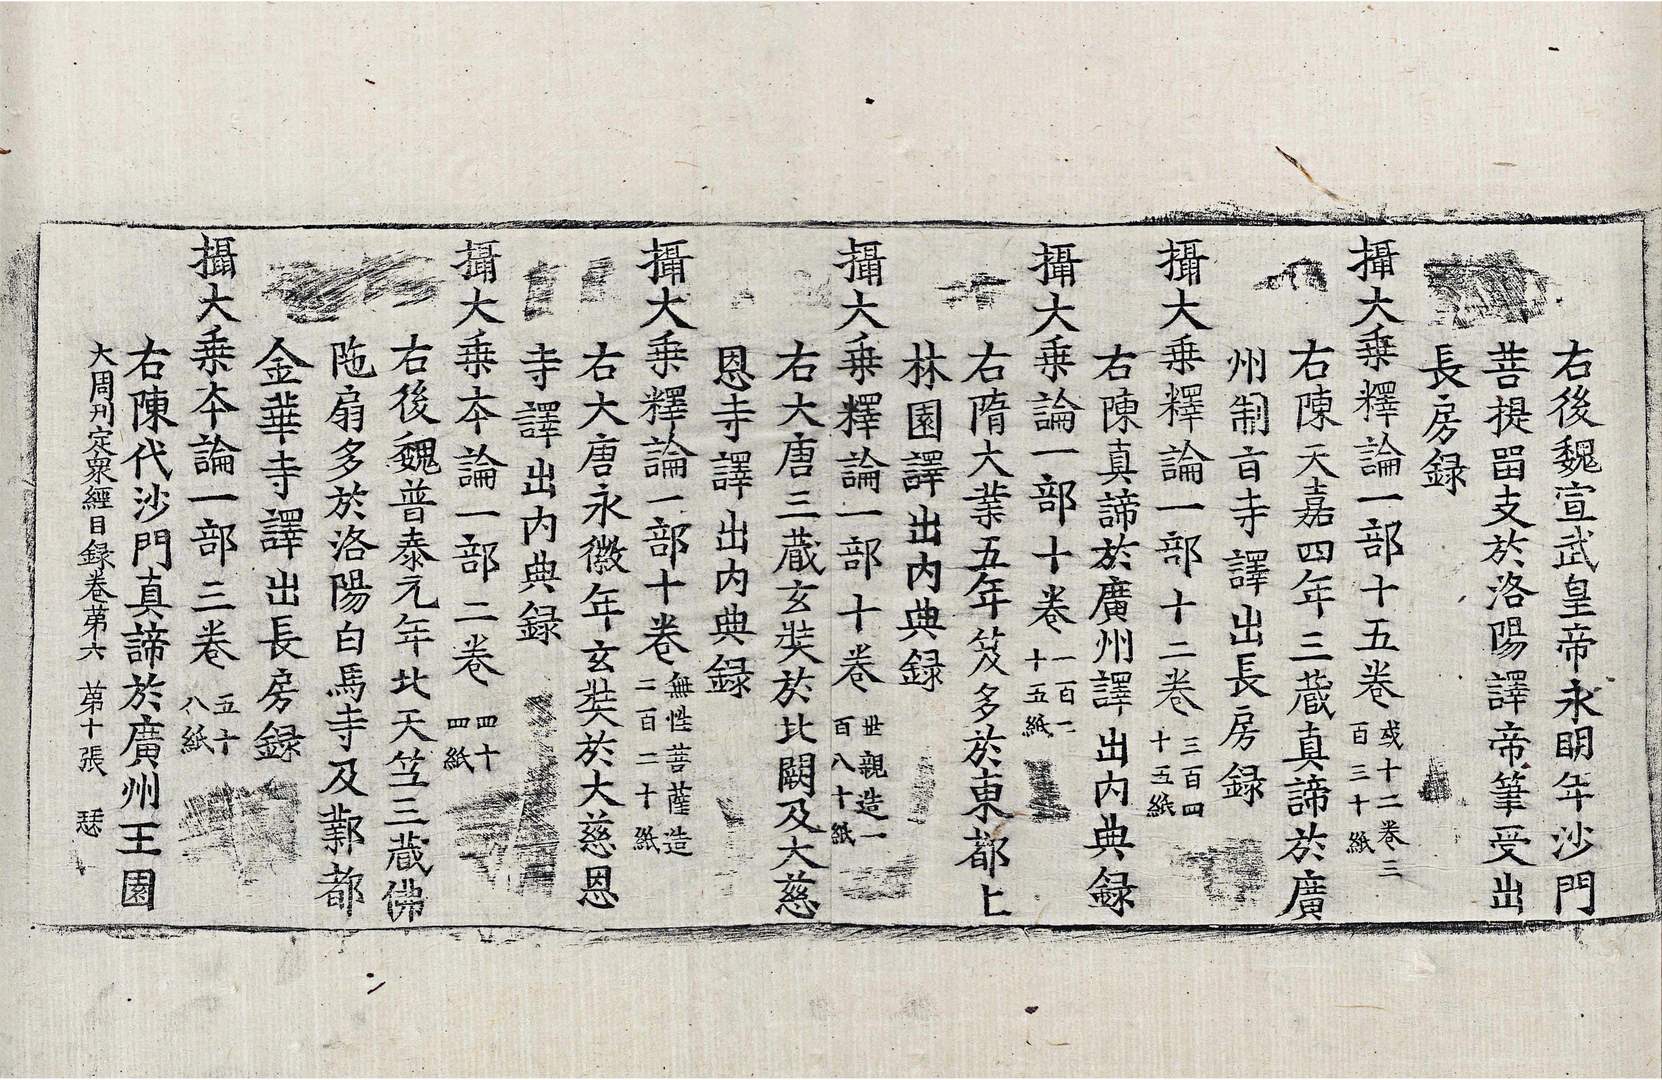 右後魏宣武皇帝永明年沙門
菩提留支於洛陽譯帝筆受出
長房録
攝大乗釋論一部十五卷或十二卷三百三十紙
右陳天嘉四年三蔵真諦於廣
州制旨寺譯出長房録
攝大乗釋論一部十二卷三百四十五紙
右陳真諦於廣州譯出内典録
攝大乗論一部十卷一百一十五紙
右隋大業五年笈多於東都上
林園譯出内典録
攝大乗釋論一部十卷世親造一百八十紙
右大唐三蔵玄奘於北闕及大慈
恩寺譯出内典録
攝大乗釋論一部十卷無性菩薩造二百二十紙
右大唐永徽年玄奘於大慈恩
寺譯出内典録
攝大乗夲論一部二卷四十四紙
右後魏普泰元年北天竺三蔵佛
陁扇多於洛陽白馬寺及鄴都
金華寺譯出長房録
攝大乗夲論一部三卷五十八紙
右陳代沙門真諦於廣州王園
大周刊定衆經目録卷苐六 苐十張 瑟